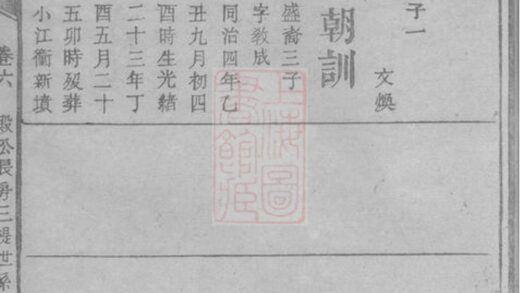 子一
文煥
朝訓
盛裔三子
字教成
同治四年乙
丑九月初四
酉時生光緒
二十三年丁
酉五月二十
五卯時歿葬
小江衝新墳
卷六 公長房三提世系
上海圖
書館藏